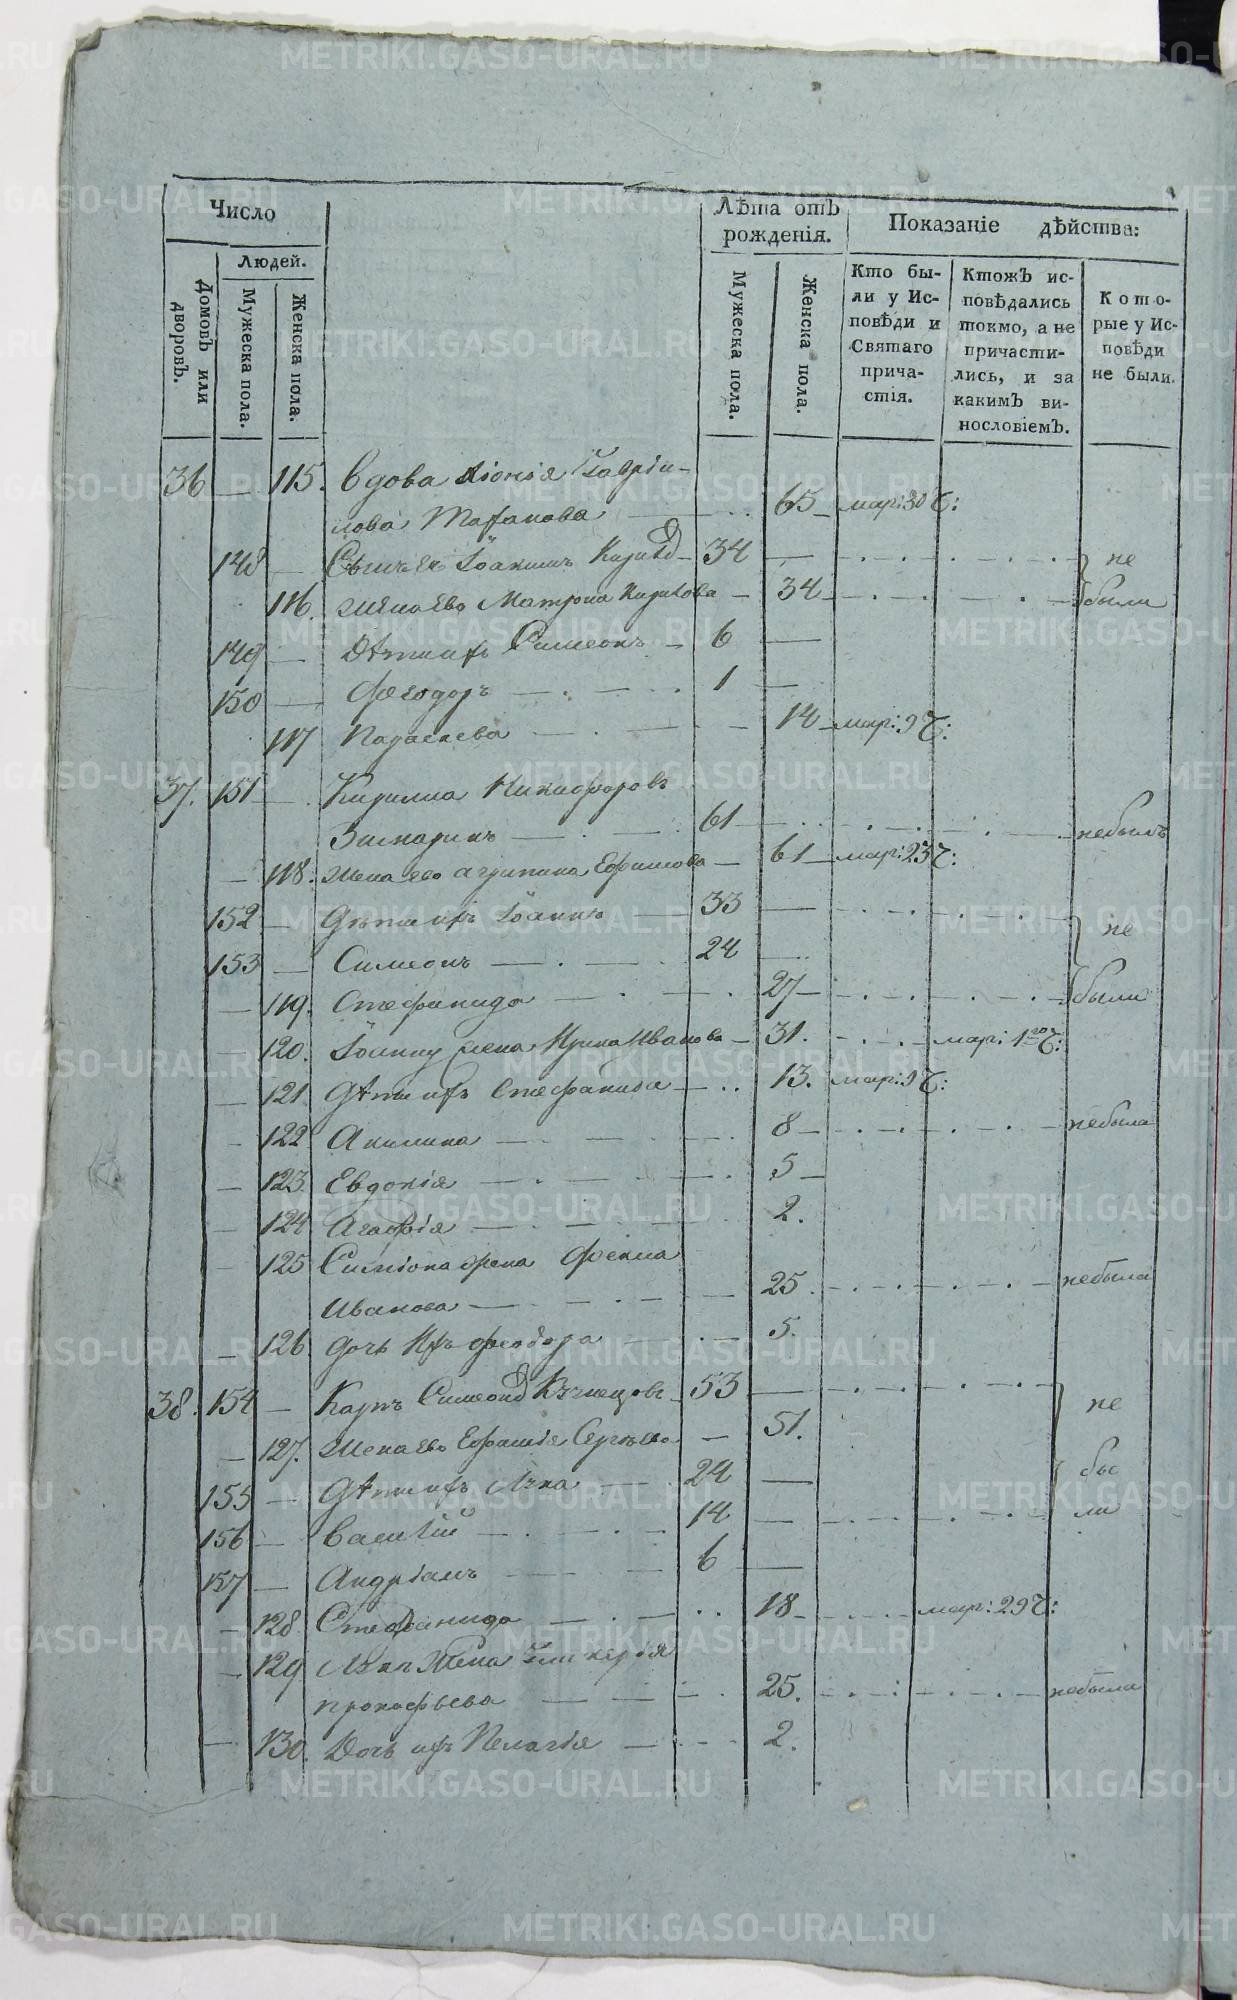 Число
Лѣта отъ рожденія.
Показаніе дѣйства:
Людей.
Домовъ или дворовъ.
Мужеска пола.
Женска пола.
Мужеска пола.
Женска пола.
Кто бы-
ли у Ис-
повѣди и
Святаго
прича-
стія.
Ктожъ ис-
повѣдались
токмо, а не
причасти-
лись, и за
какимъ ви-
нословіемъ.
Кото-
рые у Ис-
повѣди
не были.
36 — 115. Вдова Гаврии-
лова — 65 — мар: 30 Ч:
148 — Сынъ ея Іоакимъ 34 — не
116. Жена Ево Матрона Кирилова — 34 — были
149 — Дѣти ихъ Симеонъ — 6 —
150 — Феодоръ — 1 —
117 Параскева — 14 — мар: 9 Ч:
37. 151 — Кирилла Никифоровъ
61 — небылъ
118. Жена ево Агрипина Ефимова — 61 — мар: 23 Ч:
152 — Дѣти ихъ Іоаннъ — 33 — не
153 — Симеонъ — 24 —
119. Стефанида — 27 — были
120. Іоанну жена Ирина Иванова — 31. — мар: 1 Ч:
121 Дѣти ихъ Стефанида — 13. мар: 9 Ч:
122 Акилина — 8 — небыла
123 Евдокія — 5 —
124 Агафія — 2.
125 Симіона жена Фекла
Иванова — 25. — небыла
126 Дочь Ихъ Феодора — 5.
38. 154 — Карпъ Симеонов Кузнецовъ 53 — не
127. Жена Ево Ефимія Сергѣева — 51.
155 — Дѣти ихъ Лука — 24 — бы
156 — Василій — 14 — ли
157 — Андріанъ — 6 —
128. Стефанида — 18 — мар: 29 Ч:
129 Жена Гликерія
Прокофьева — 25. — небыла
130. Дочь ихъ Пелагія — 2.
METRIKI.GASO-URAL.RU